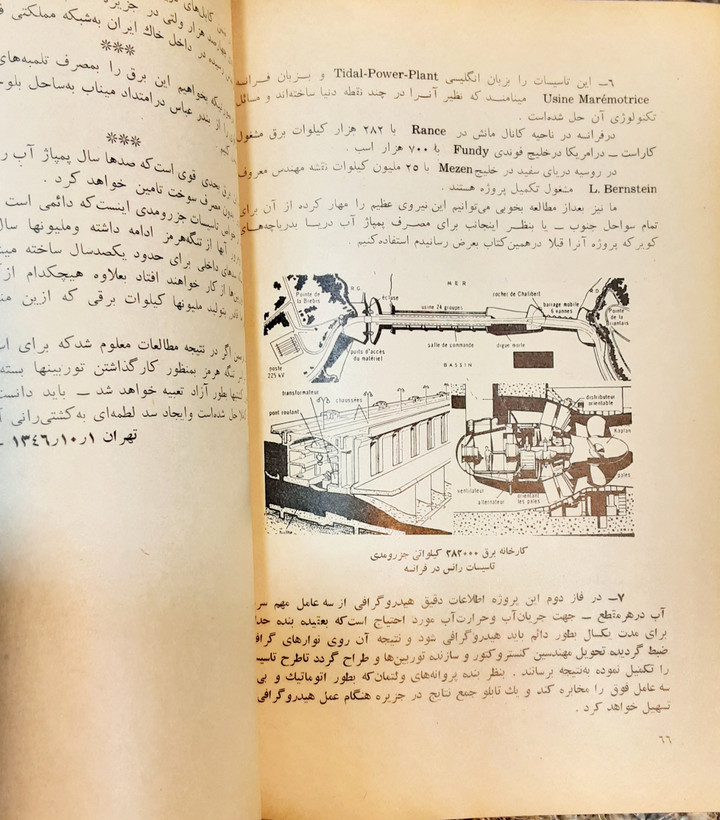 ٦ــ این تاسیسات را بزبان انگلیسی Tidal-Power-Plant و بزبان فرانسه
Usine Marémotrice مینامند که نظیر آنرا در چند نقطه دنیا ساخته‌اند و مسائل
تکنولوژی آن حل شده‌است .
درفرانسه در ناحیه کانال مانش در Rance با ۲۸۲ هزار کیلوات برق مشغول
کاراست ــ درامریکا درخلیج فوندی Fundy با ۷۰۰ هزار اسب .
در روسیه دریای سفید در خلیج Mezen با ۲۵ ملیون کیلوات نقشه مهندس معروف
L. Bernstein مشغول تکمیل پروژه هستند .
ما نیز بعداز مطالعه بخوبی می‌توانیم این‌نیروی عظیم را مهار کرده از آن برای
تمام سواحل جنوب ــ یا بنظر اینجانب برای مصرف پمپاژ آب دریا بدریاچه‌های
کویر که پروژه آنرا قبلا درهمین‌کتاب بعرض رسانیدم استفاده‌کنیم .
Pointe de la Brebis
R.G.
écluse
MER
usine 24 groupes
rocher de Chalibert
barrage mobile 6 vannes
R.D.
Pointe de la Briantais
puits d'accès du matériel
salle de commande
digue morte
poste 225 kV
BASSIN
transformateur
chaussées
pont roulant
distributeur orientable
Kaplan
pales
ventilateur
alternateur
orientant les pales
کارخانه برق ۲۸۲۰۰۰ کیلواتی جزرومدی
تاسیسات رانس در فرانسه
۷ــ در فاز دوم این پروژه اطلاعات دقیق هیدروگرافی از سه عامل مهم
آب درهرمقطع ــ جهت جریان‌آب وحرارت‌آب مورد احتیاج است‌که بعقیده بنده
برای مدت یکسال بطور دائم باید هیدروگرافی شود و نتیجه آن روی نوارهای
ضبط گردیده تحویل مهندسین کنستروکتور و سازنده توربین‌ها و طراح گردد تاطرح
را تکمیل نموده به‌نتیجه برسانند . بنظر بنده پروانه‌های ولتمان‌که بطور اتوماتیك و
سه عامل فوق را مخابره کند و یك تابلو جمع نتایج در جزیره هنگام عمل هیدروگرافی
تسهیل خواهد کرد .
٦٦
جزیره
داخل خاك ایران به‌شبکه مملکتی
***
بخواهیم این برق را بمصرف تلمبه‌های
از بندر عباس درامتداد میناب به‌ساحل
***
برق بعدی قوی است‌که صدها سال پمپاژ آب
مصرف سوخت تامین خواهد کرد .
تاسیسات جزرومدی اینست‌که دائمی است
آنها از تنگه‌هرمز ادامه داشته وملیونها
داخلی برای حدود یکصدسال ساخته
از کار خواهند افتاد بعلاوه هیچکدام
بتولید ملیونها کیلوات برقی که ازین
اگر در نتیجه مطالعات معلوم شدکه برای
تنگه هرمز بمنظور کارگذاشتن توربینها بسته
بطور آزاد تعبیه خواهد شد ــ باید
حل شده‌است وایجاد سد لطمه‌ای به‌کشتی‌رانی
تهران ۱ر۱۰ر۱۳٤٦